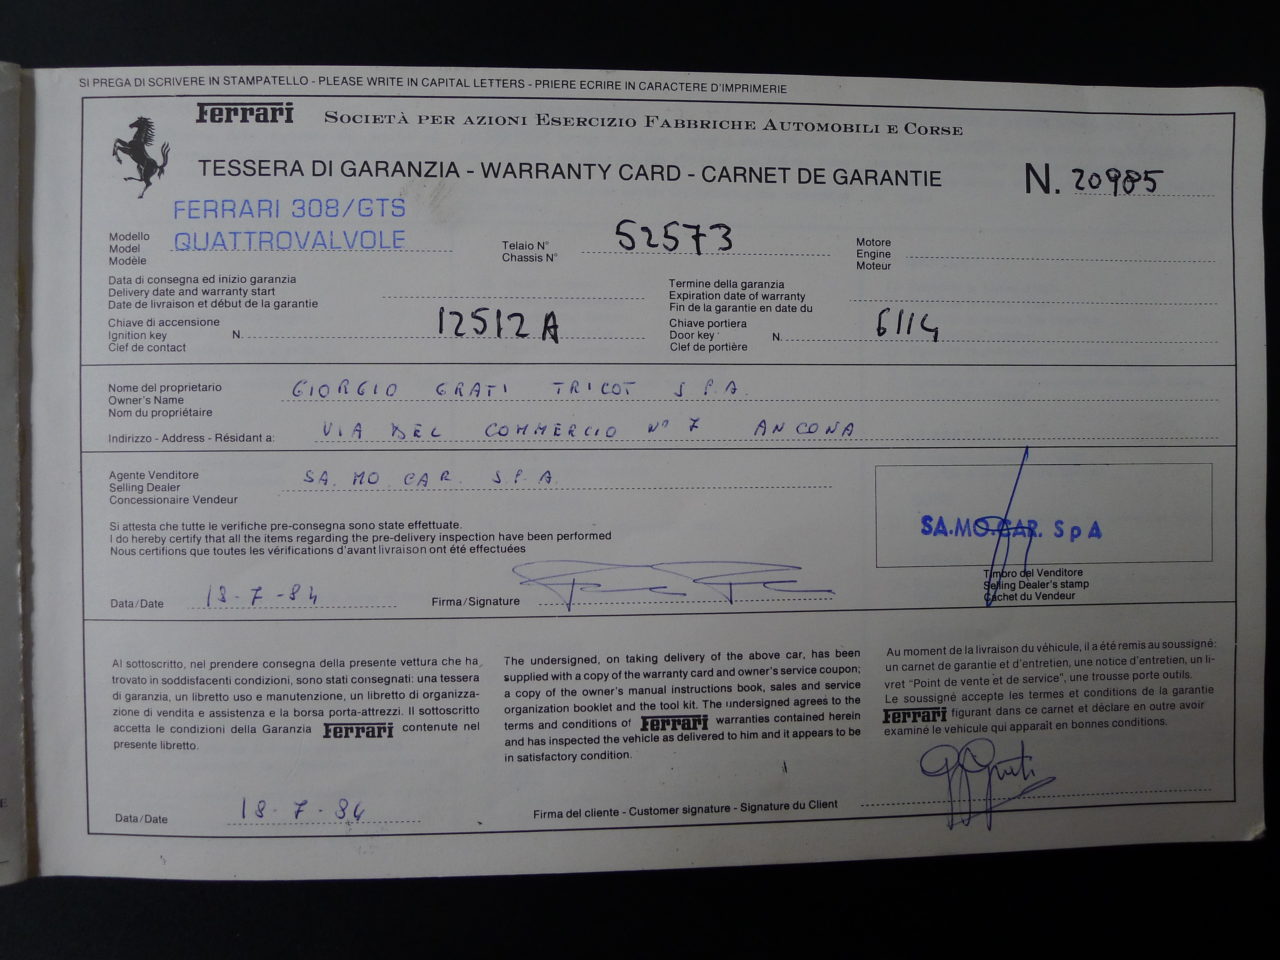 SI PREGA DI SCRIVERE IN STAMPATELLO - PLEASE WRITE IN CAPITAL LETTERS - PRIERE ECRIRE IN CARACTERE D'IMPRIMERIE
Ferrari SOCIETÀ PER AZIONI ESERCIZIO FABBRICHE AUTOMOBILI E CORSE
TESSERA DI GARANZIA - WARRANTY CARD - CARNET DE GARANTIE N. 20985
FERRARI 308/GTS
QUATTROVALVOLE
Modello
Model
Modèle
Telaio N°
Chassis N°
52573
Motore
Engine
Moteur
Data di consegna ed inizio garanzia
Delivery date and warranty start
Date de livraison et début de la garantie
Termine della garanzia
Expiration date of warranty
Fin de la garantie en date du
Chiave di accensione
Ignition key N. 12512A
Clef de contact
Chiave portiera
Door key N. 6114
Clef de portière
Nome del proprietario
Owner's Name
Nom du propriétaire
GIORGIO GRATI TRICOT S.P.A.
Indirizzo - Address - Résidant a: VIA DEL COMMERCIO N° 7 ANCONA
Agente Venditore
Selling Dealer
Concessionaire Vendeur
SA. MO CAR. S.P.A.
SA.MO.CAR. SpA
Si attesta che tutte le verifiche pre-consegna sono state effettuate.
I do hereby certify that all the items regarding the pre-delivery inspection have been performed
Nous certifions que toutes les vérifications d'avant livraison ont été effectuées
Timbro del Venditore
Selling Dealer's stamp
Cachet du Vendeur
Data/Date 18-7-84 Firma/Signature
Al sottoscritto, nel prendere consegna della presente vettura che ha
trovato in soddisfacenti condizioni, sono stati consegnati: una tessera
di garanzia, un libretto uso e manutenzione, un libretto di organizza-
zione di vendita e assistenza e la borsa porta-attrezzi. Il sottoscritto
accetta le condizioni della Garanzia Ferrari contenute nel
presente libretto.
The undersigned, on taking delivery of the above car, has been
supplied with a copy of the warranty card and owner's service coupon;
a copy of the owner's manual instructions book, sales and service
organization booklet and the tool kit. The undersigned agrees to the
terms and conditions of Ferrari warranties contained herein
and has inspected the vehicle as delivered to him and it appears to be
in satisfactory condition.
Au moment de la livraison du véhicule, il a été remis au soussigné:
un carnet de garantie et d'entretien, une notice d'entretien, un li-
vret "Point de vente et de service", une trousse porte outils.
Le soussigné accepte les termes et conditions de la garantie
Ferrari figurant dans ce carnet et déclare en outre avoir
examiné le vehicule qui apparait en bonnes conditions.
Data/Date 18-7-84
Firma del cliente - Customer signature - Signature du Client